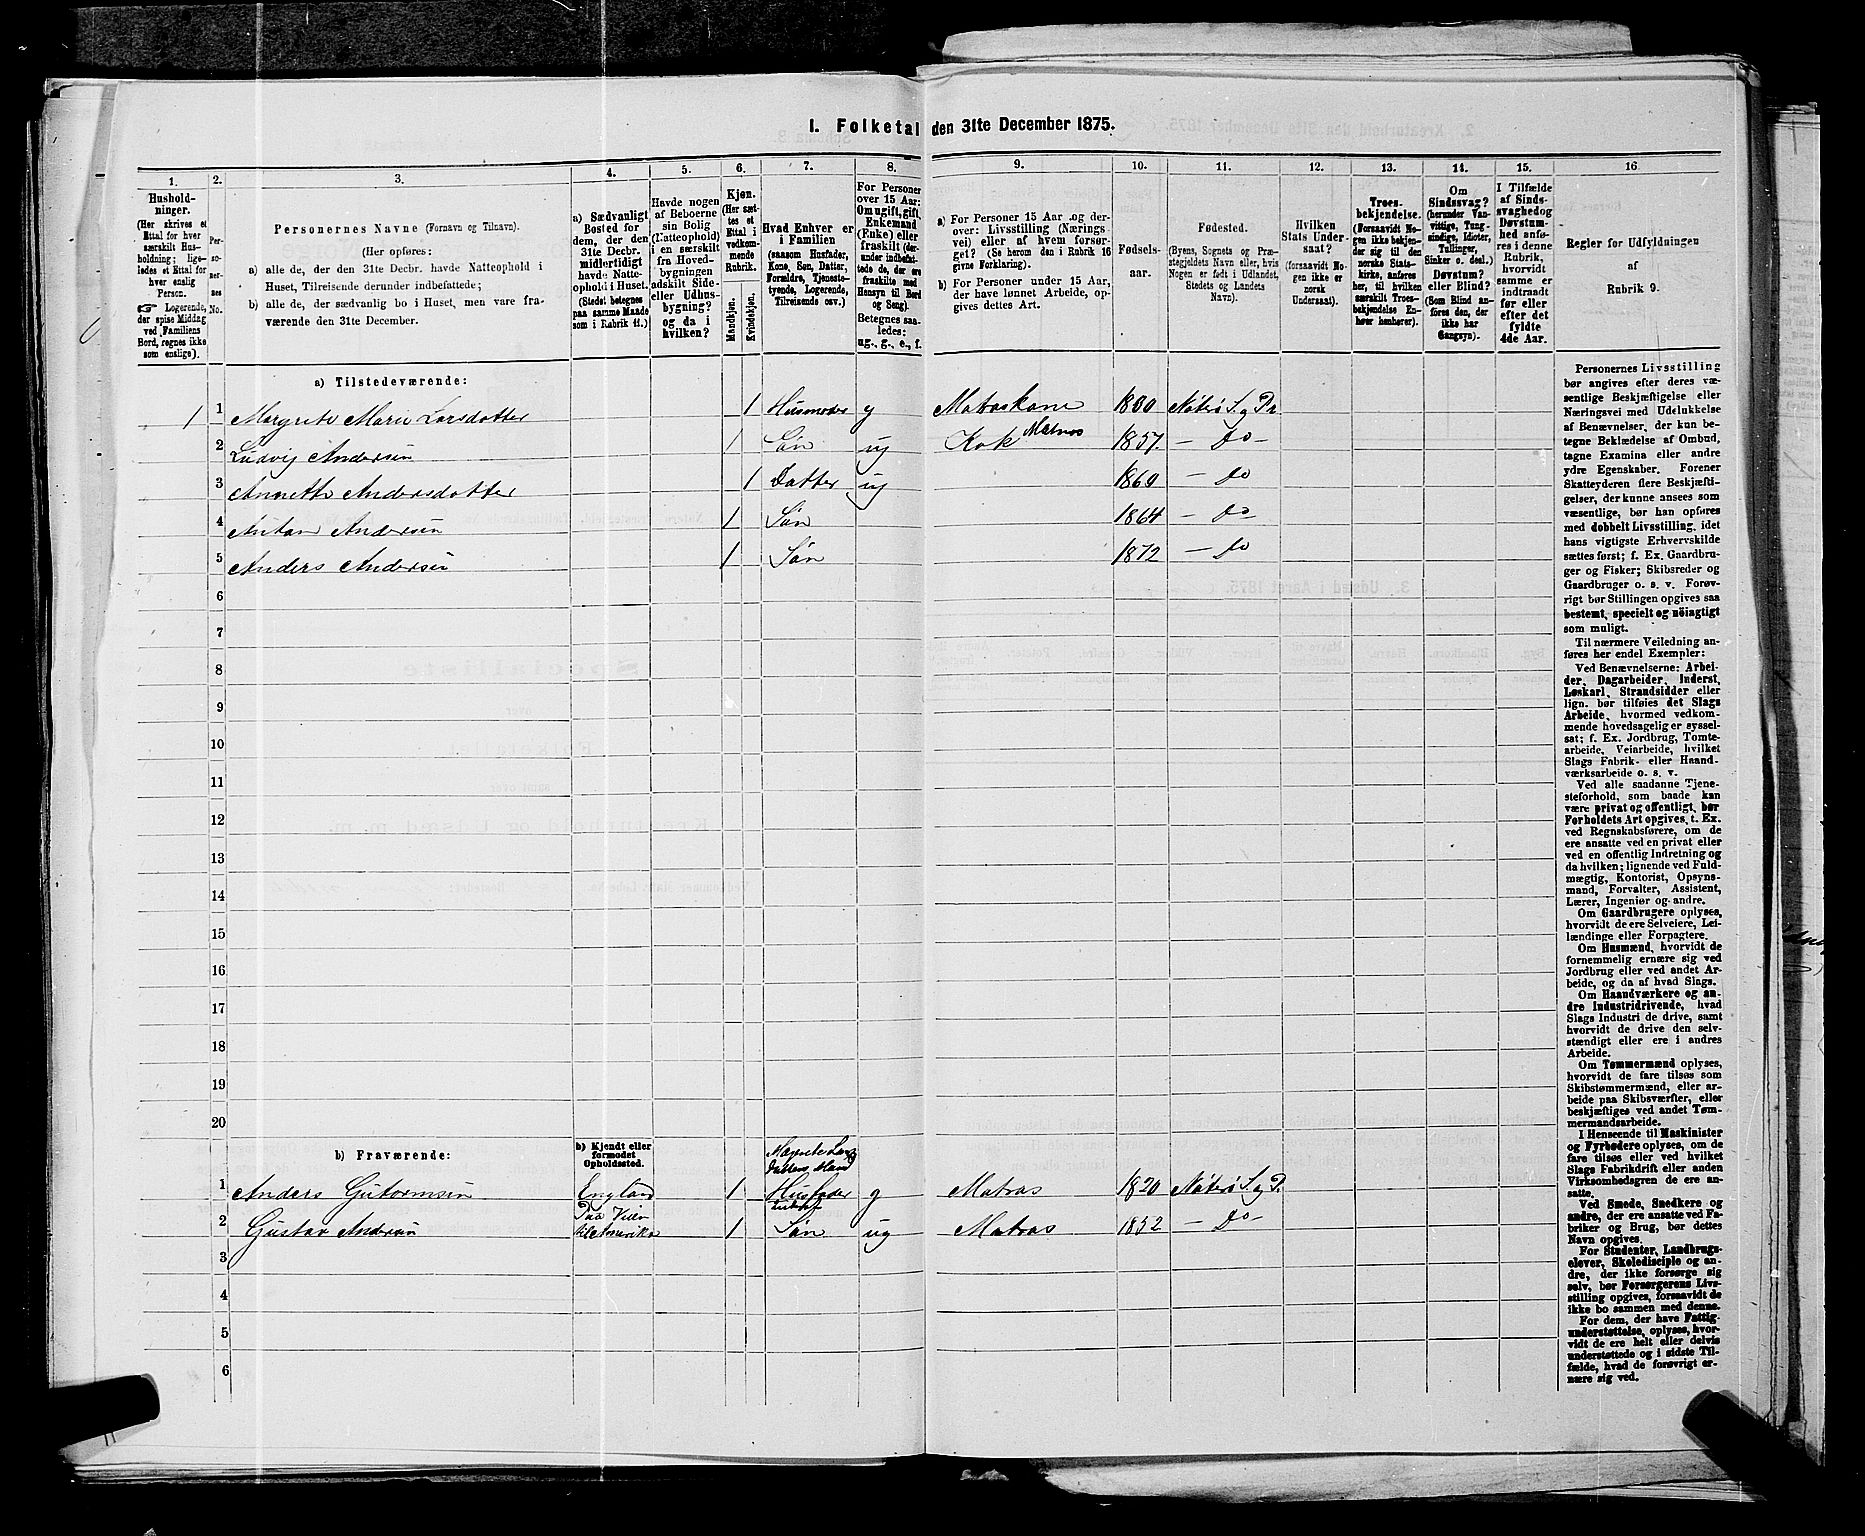 I. Folketal den 31te December 1875.
1. 2. 3. 4. 5. 6. 7. 8. 9. 10. 11. 12. 13. 14. 15. 16
Hushold-
ninger.
(Her skrives et
Ettal for hver
særskilt Hus-
holdning; lige-
ledes et Ettal for
hver enslig
Person.
☞ Logerende,
der spise Middag
ved Familiens
Bord, regnes ikke
som enslige).
Per-
so-
ner-
nes
No.
Personernes Navne (Fornavn og Tilnavn).
(Her opføres:
a) alle de, der den 31te Decbr. havde Natteophold i
Huset, Tilreisende derunder indbefattede;
b) alle de, der sædvanlig bo i Huset, men vare fra-
værende den 31te December.
a) Sædvanligt
Bosted for
dem, der den
31te Decbr.
midlertidigt
havde Natte-
ophold i Huset.
(Stedet betegnes
paa samme Maade
som i Rubrik 11.)
Havde nogen
af Beboerne
sin Bolig
(Natteophold)
i en særskilt
fra Hoved-
bygningen
adskilt Side-
eller Udhus-
bygning?
og da i
hvilken?
Kjøn.
(Her sæt-
tes et
Ettal i
vedkom-
mende
Rubrik.
Mandkjøn.
Kvindekjøn.
Hvad Enhver er
i Familien
(saasom Husfader,
Kone, Søn, Datter,
Forældre, Tjeneste-
tyende, Logerende,
Tilreisende osv.)
For Personer
over 15 Aar:
Om ugift, gift,
Enkemand
(Enke) eller
fraskilt (der-
under indbefat-
tede de, der ere
fraskilte med
Hensyn til Bord
og Seng).
Betegnes saa-
ledes:
ug., g., e., f.
a) For Personer 15 Aar og der-
over: Livsstilling (Nærings-
vei) eller af hvem forsør-
get? (Se herom den i Rubrik 16
givne Forklaring).
b) For Personer under 15 Aar,
der have lønnet Arbeide, op-
gives dettes Art.
Fødsels-
aar.
Fødested.
(Byens, Sognets og Præ-
stegjeldets Navn eller, hvis
Nogen er født i Udlandet,
Stedets og Landets
Navn).
Hvilken
Stats Under-
saat?
(forsaavidt No-
gen ikke er
norsk
Undersaat).
Troes-
bekjendelse.
(Forsaavidt No-
gen ikke bekjen-
der sig til den
norske Stats-
kirke, anføres
her, til hvilken
særskilt Troes-
bekjendelse En-
hver henhører).
Om
Sindssvag?
(herunder Van-
vittige, Tung-
sindige, Idioter,
Tullinger,
Sinker o. desl.)
Døvstum?
eller Blind?
(Som Blind an-
føres den, der
ikke har
Gangsyn).
I Tilfælde
af Sinds-
svaghed og
Døvstum-
hed anfø-
res i denne
Rubrik,
hvorvidt
samme er
indtraadt
før eller
efter det
fyldte
4de Aar.
Regler for Udfyldningen
af
Rubrik 9.
a) Tilstedeværende:
1 1 Margrete Marie Larsdatter 1 Husmoder g Matroskone 1830 Nøterø S. og Pr
2 Ludvig Andersen 1 Søn ug Kok Matros 1857 — Do —
3 Annette Andersdatter 1 Datter ug 1860 — Do
4 Anton Andersen 1 Søn 1864 — Do
5 Anders Andersen 1 Søn 1872 — Do
6
7
8
9
10
11
12
13
14
15
16
17
18
19
20
b) Fraværende:
b) Kjendt eller
formodet
Opholdssted.
1 Anders Gutormsen England 1 Husfader g Matros 1820 Nøterø S. g P.
2 Gustav Andersen Paa Veien til Amerika 1 Søn ug Matros 1852 — Do —
3
4
5
6
Personernes Livsstilling
bør angives efter deres væ-
sentlige Beskjæftigelse eller
Næringsvei med Udelukkelse
af Benævnelser, der kun be-
tegne Beklædelse af Ombud,
tagne Examina eller andre
ydre Egenskaber. Forener
Skatteyderen flere Beskjæfti-
gelser, der kunne ansees som
væsentlige, bør han opføres
med dobbelt Livsstilling, idet
hans vigtigste Erhvervskilde
sættes først; f. Ex. Gaardbru-
ger og Fisker; Skibsreder og
Gaardbruger o. s. v. Forøv-
rigt bør Stillingen opgives saa
bestemt, specielt og nöiagtigt
som muligt.
Til nærmere Veiledning an-
føres her endel Exempler:
Ved Benævnelserne: Arbei-
der, Dagarbeider, Inderst,
Løskarl, Strandsidder eller
lign. bør tilføies det Slags
Arbeide, hvormed vedkom-
mende hovedsagelig er syssel-
sat; f. Ex. Jordbrug, Tomte-
arbeide, Veiarbeide, hvilket
Slags Fabrik- eller Haand-
værksarbeide o. s. v.
Ved alle saadanne Tjene-
steforhold, som baade kan
være privat og offentligt, bør
Forholdets Art opgives, t. Ex.
ved Regnskabsførere, om de
ere ansatte ved en privat eller
ved en offentlig Indretning og
da hvilken; lignende ved Fuld-
mægtig, Kontorist, Opsyns-
mand, Forvalter, Assistent,
Lærer, Ingeniør og andre.
Om Gaardbrugere oplyses,
hvorvidt de ere Selveiere, Lei-
lændinge eller Forpagtere.
Om Husmænd, hvorvidt de
fornemmelig ernære sig ved
Jordbrug eller ved andet Ar-
beide, og da af hvad Slags.
Om Haandværkere og an-
dre Industridrivende, hvad
Slags Industri de drive, samt
hvorvidt de drive den selv-
stændigt eller ere i andres
Arbeide.
Om Tømmermænd oplyses,
hvorvidt de fare tilsøs som
Skibstømmermænd, eller ar-
beide paa Skibsværfter, eller
beskjæftiges ved andet Tøm-
mermandsarbeide.
I Henseende til Maskinister
og Fyrbødere oplyses, om de
fare tilsøs eller ved hvilket
Slags Fabrikdrift eller anden
Virksomhedsgren de ere an-
satte.
Ved Smede, Snedkere og
andre, der ere ansatte ved Fa-
briker og Brug, bør dettes
Navn opgives.
For Studenter, Landbrugs-
elever, Skoledisciple og an-
dre, der ikke forsørge sig
selv, bør Forsørgerens Livs-
stilling opgives, forsaavidt de
ikke bo sammen med denne.
For dem, der have Fattig-
understøttelse, oplyses, hvor-
vidt de ere helt eller delvis
understøttede og i sidste Til-
fælde, hvad de forøvrigt er-
nære sig ved.